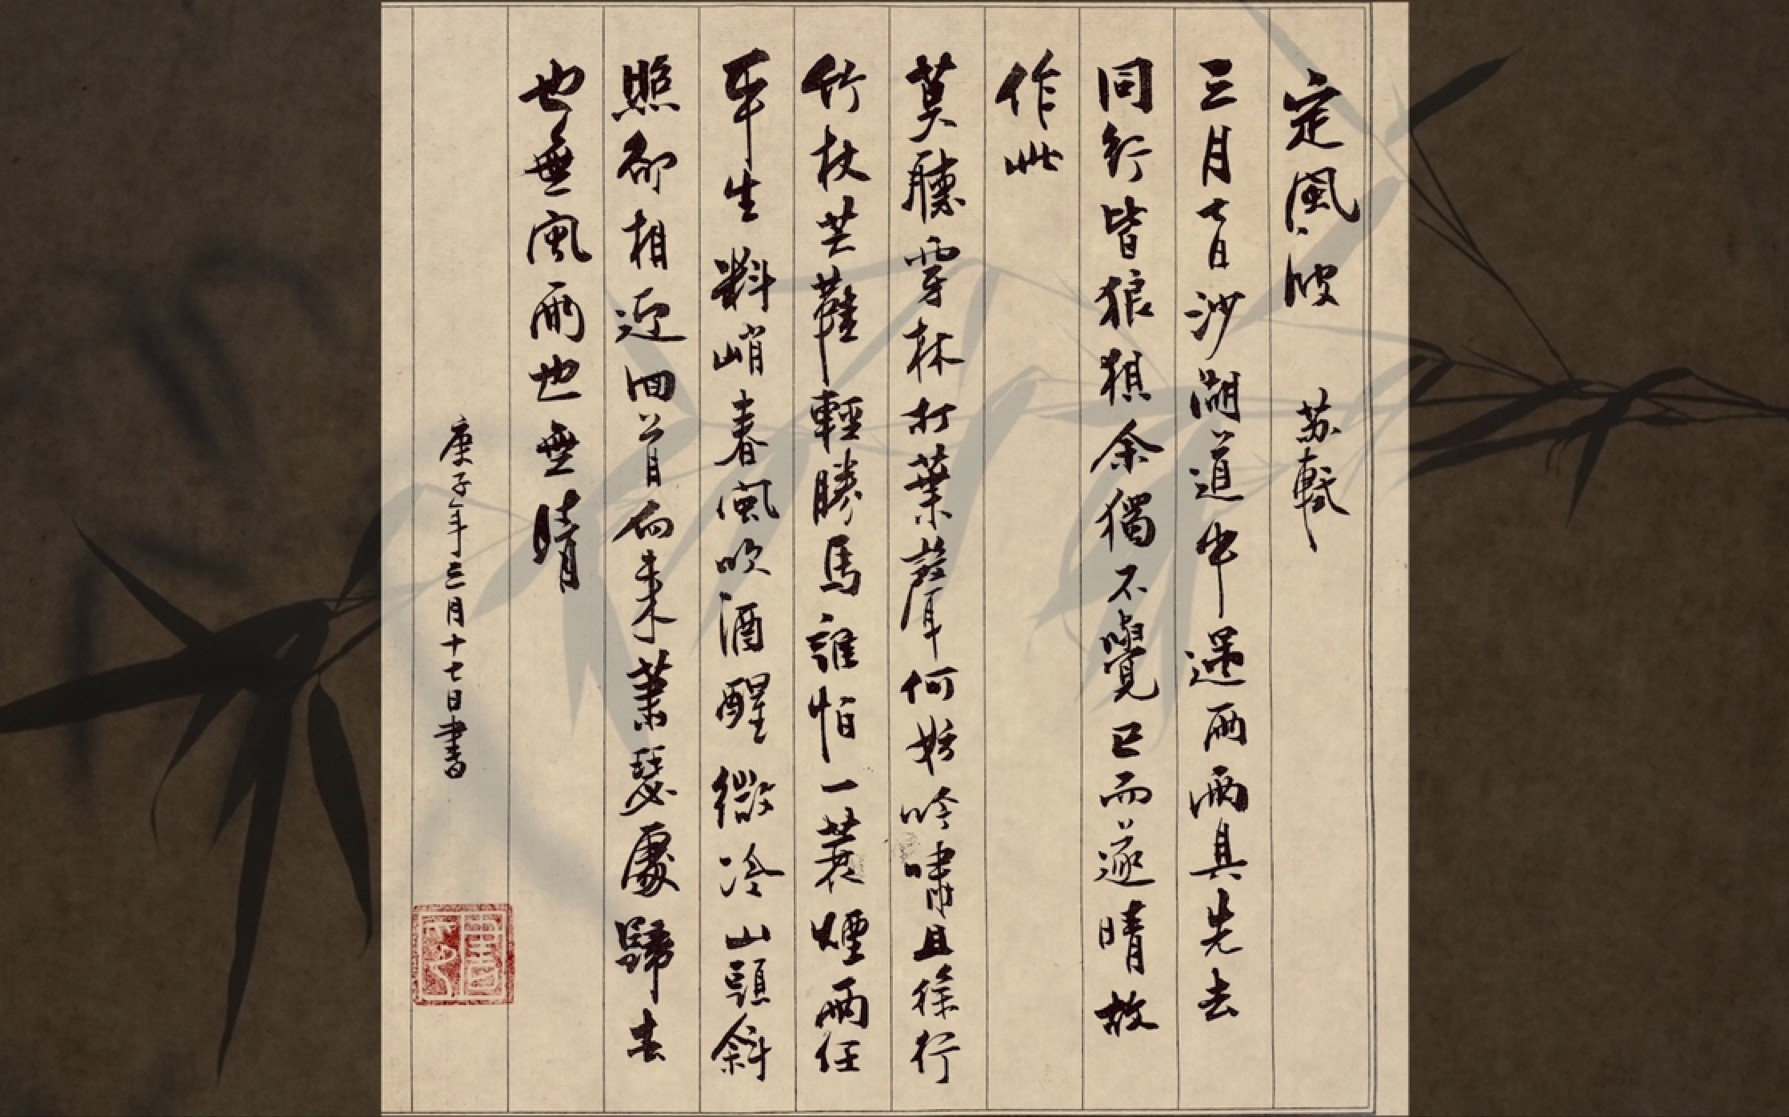 定風波 苏軾
三月七日沙湖道中遇雨雨具先去
同行皆狼狽余獨不覺已而遂晴故
作此
莫聽穿林打葉聲何妨吟嘯且徐行
竹杖芒鞋輕勝馬誰怕一蓑煙雨任
平生料峭春風吹酒醒微冷山頭斜
照卻相迎回首向来蕭瑟處歸去
也無風雨也無晴
庚子年三月十七日書